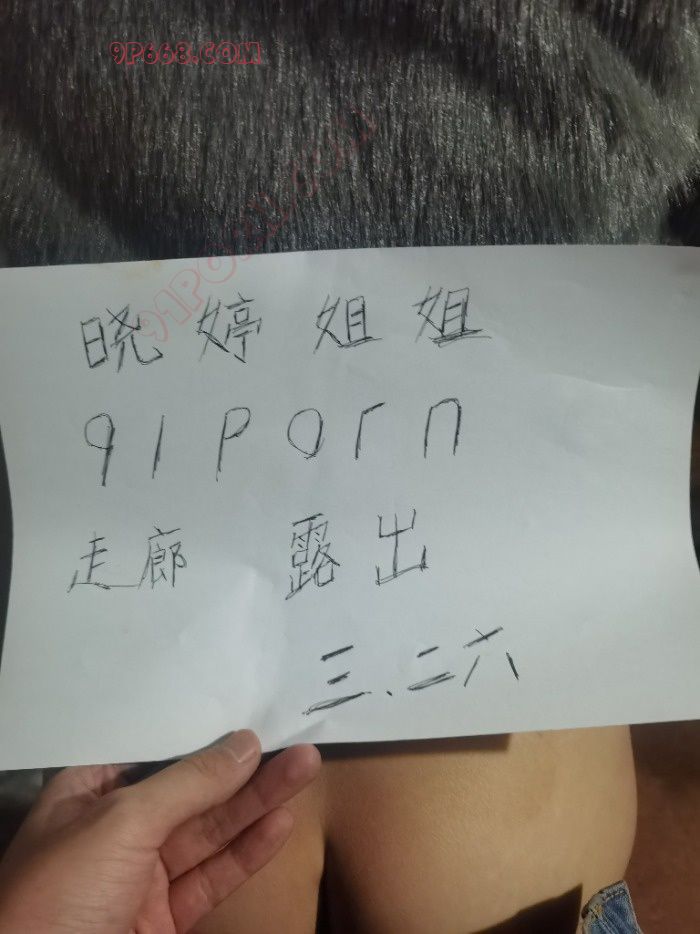 9P668.COM
91PORN.COM
晓婷姐姐
91porn
走廊 露出
三、二六